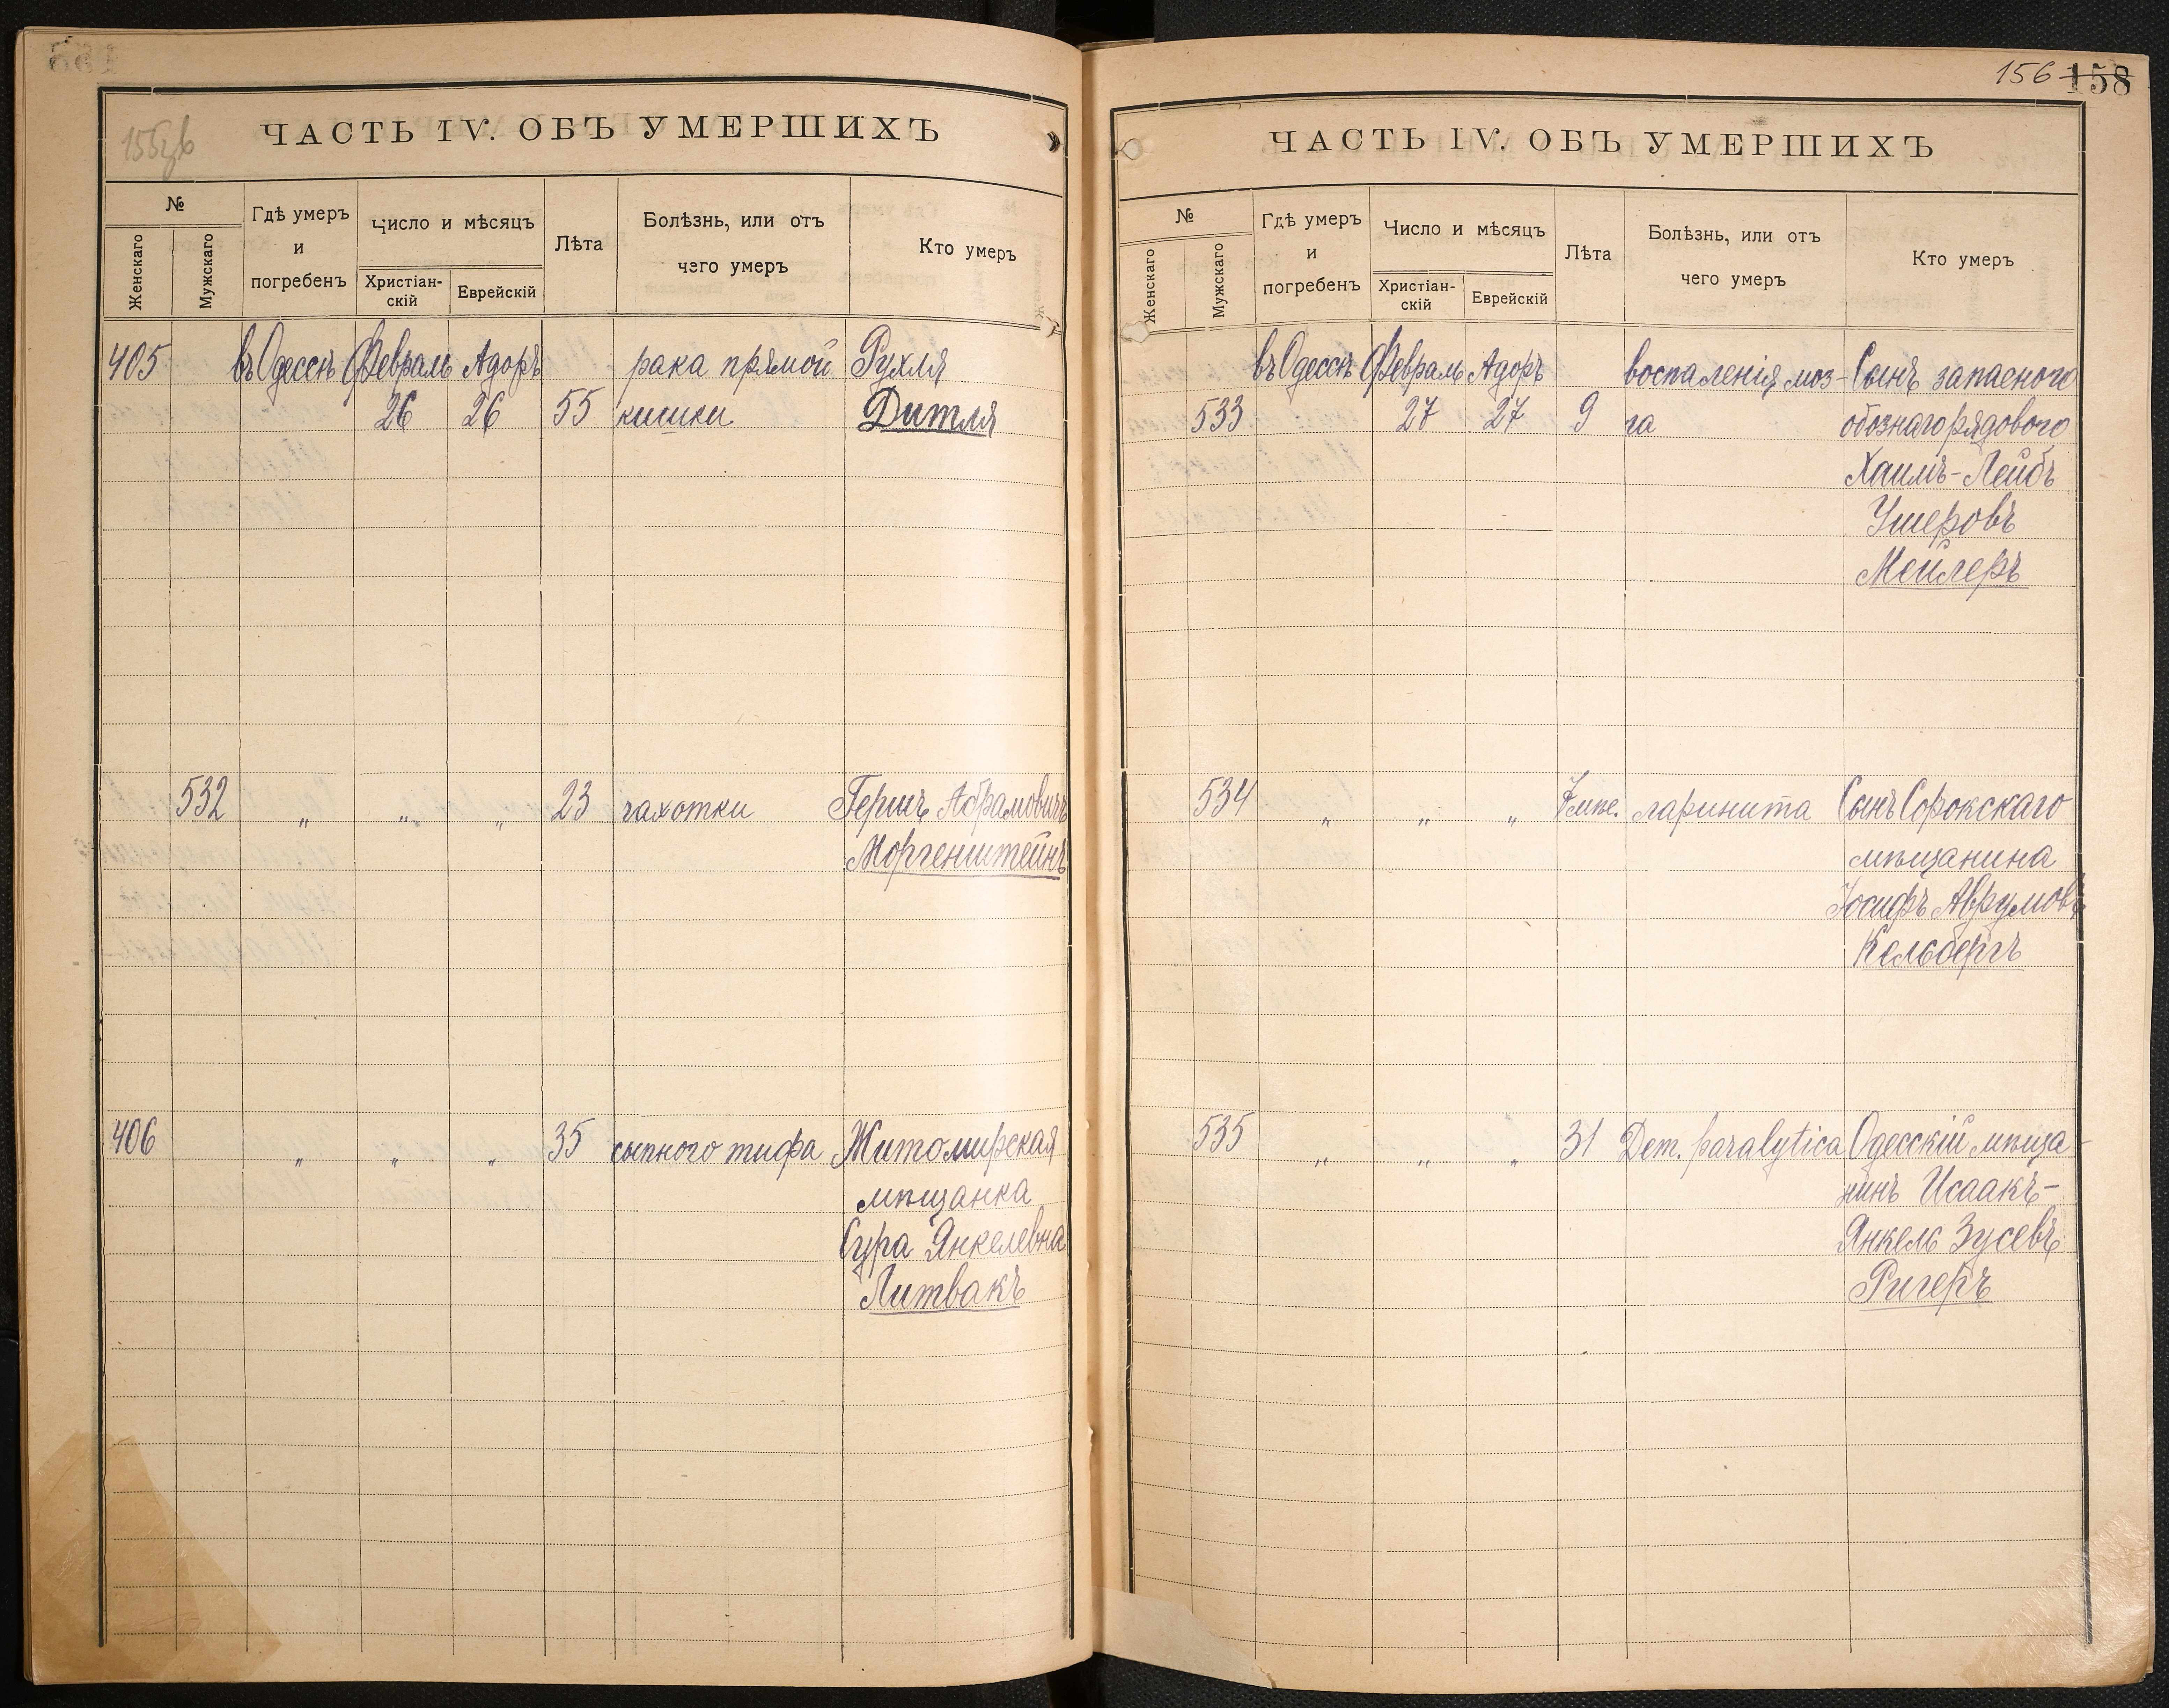 155об
ЧАСТЬ IV. ОБЪ УМЕРШИХЪ
№
Женскаго
Мужскаго
Гдѣ умеръ
и
погребенъ
Число и мѣсяцъ
Христіан-
скій
Еврейскій
Лѣта
Болѣзнь, или отъ
чего умеръ
Кто умеръ
405 въ Одессѣ Февраль Адоръ рака прямой Рухля
26 26 55 кишки Дитля
532 „ „ „ 23 чахотки Гершъ Абрамовичъ
Моргенштейнъ
406 „ „ „ 35 сыпного тифа Житомирская
мѣщанка
Сура Янкелевна
Литвакъ
156 158
ЧАСТЬ IV. ОБЪ УМЕРШИХЪ
№
Женскаго
Мужскаго
Гдѣ умеръ
и
погребенъ
Число и мѣсяцъ
Христіан-
скій
Еврейскій
Лѣта
Болѣзнь, или отъ
чего умеръ
Кто умеръ
въ Одессѣ Февраль Адоръ воспаленія моз- Сынъ запасного
533 27 27 9 га обознаго рядового
Хаимъ-Лейбъ
Ушеровъ
Мейлеръ
534 „ „ „ ларинита Сынъ Сорокскаго
мѣщанина
Іосифъ Аврумовъ
Кельбергъ
535 „ „ „ 31 Dem. paralytica Одесскій мѣща-
нинъ Исаакъ-
Янкель Зусевъ
Ригеръ